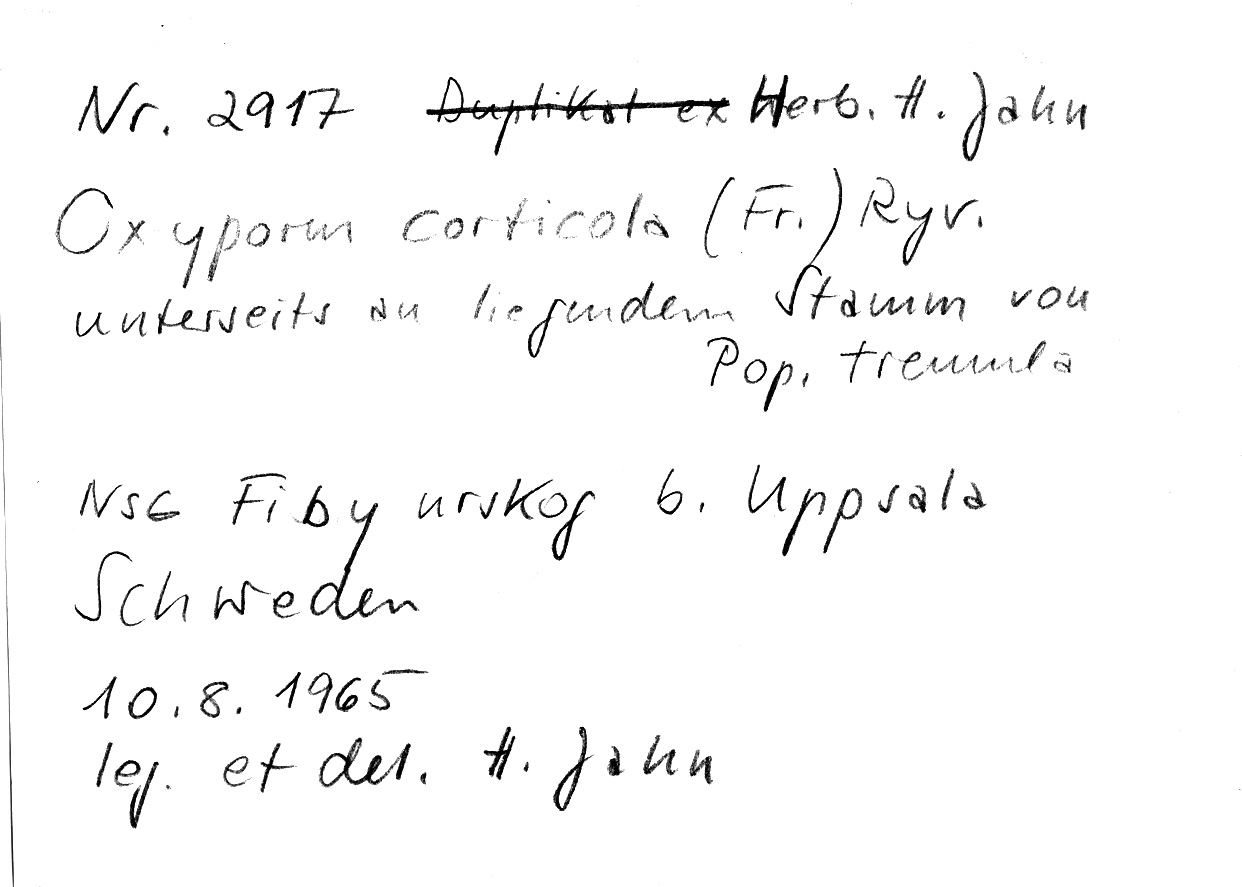 Nr. 2917 Duplikat ex Herb. H. Jahn
Oxyporus corticola (Fr.) Ryv.
unterseits an liegendem Stamm von
Pop. tremula
NSG Fiby urskog b. Uppsala
Schweden
10.8.1965
leg. et det. H. Jahn